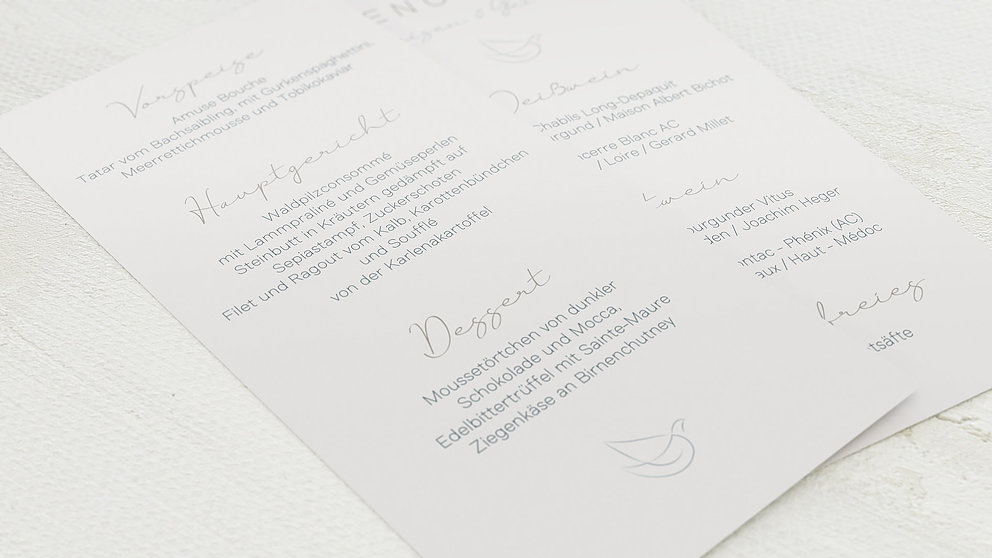 Vorspeise
Amuse Bouche
Tatar vom Bachsaibling, mit Gurkenspaghettini,
Meerrettichmousse und Tobikokaviar
Hauptgericht
Waldpilzconsommé
mit Lammpraliné und Gemüseperlen
Steinbutt in Kräutern gedämpft auf
Sepiastampf, Zuckerschoten
Filet und Ragout vom Kalb, Karottenbündchen
und Soufflé
von der Karlenakartoffel
Dessert
Moussetörtchen von dunkler
Schokolade und Mocca,
Edelbittertrüffel mit Sainte-Maure
Ziegenkäse an Birnenchutney
ENU
Weißwein
Chablis Long-Depaquit
urgund / Maison Albert Bichot
cerre Blanc AC
/ Loire / Gerard Millet
wein
burgunder Vitus
den / Joachim Heger
ntac - Phénix (AC)
aux / Haut - Médoc
freies
tsäfte